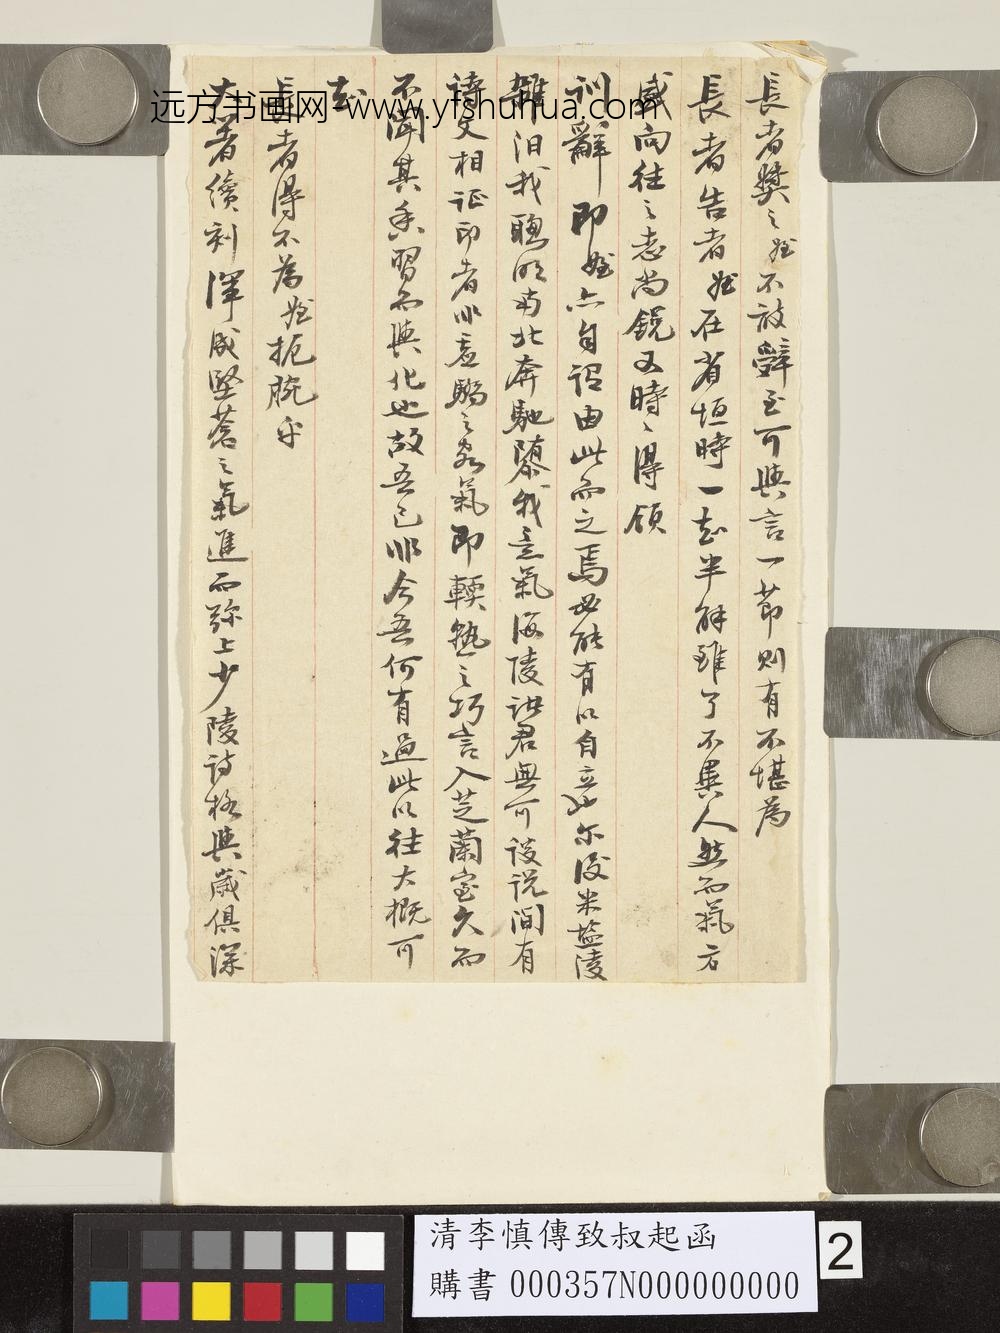 長者獎之姪不敢辭至可與言一節則有不堪為
長者告者姪在省垣時一知半解雖了不異人然而氣方
盛向往之志尚銳又時時得領
訓辭即姪亦自謂由此而之焉必能有以自立乃尔後米鹽凌
雜汩我聰明南北奔馳隳我意氣海陵諸君無可談說間有
詩文相証印者非虛驕之客氣即輭熟之巧言入芝蘭室久而
不聞其香習而與化也故吾已非今吾何有過此以往大概可
知
長者得不為姪扼腕乎
大著續刻渾成堅蒼之氣進而弥上少陵詩格與歲俱深
远方书画网-www.yfshuhua.com
清李慎傳致叔起函
購書 000357N000000000
2